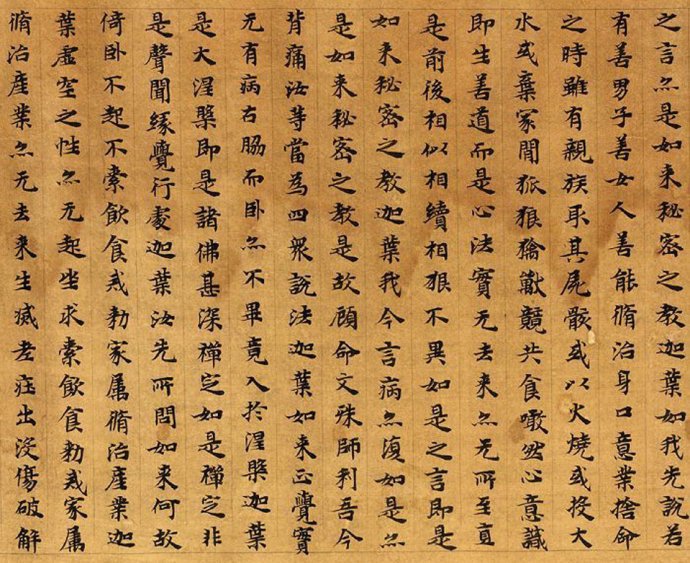 之言亦是如来秘密之教迦葉如我先說若
有善男子善女人善能脩治身口意業捨命
之時雖有親族取其屍骸或以火燒或投大
水或棄冢間狐狼禽獸競共食噉然心意識
即生善道而是心法實无去来亦无所至直
是前後相似相續相貌不異如是之言即是
如来秘密之教迦葉我今言病亦復如是亦
是如来秘密之教是故顧命文殊師利吾今
背痛汝等當為四衆說法迦葉如来正覺實
无有病右脇而卧亦不畢竟入於涅槃迦葉
是大涅槃即是諸佛甚深禪定如是禪定非
是聲聞緣覺行處迦葉汝先所問如来何故
倚卧不起不索飲食戒勑家属脩治産業迦
葉虛空之性亦无起坐求索飲食勑戒家属
脩治産業亦无去来生滅老壯出没傷破解